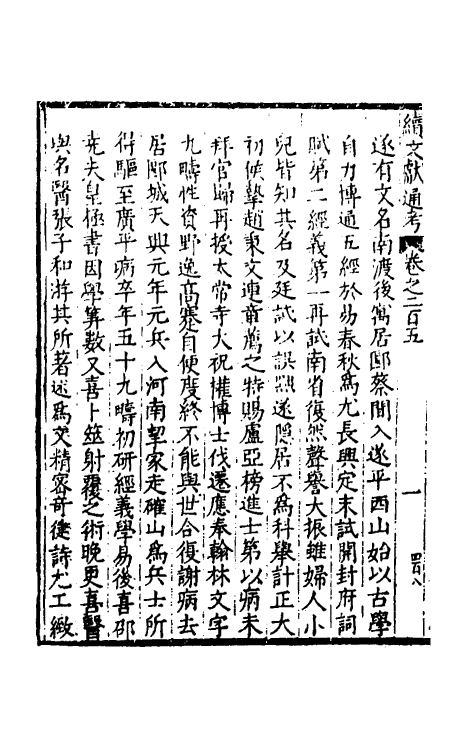 續文獻通考 卷之二百五 一
遂有文名南渡後寓居郾蔡間入遂平西山始以古學
自力博通五經於易春秋為尤長興定末試開封府詞
賦第二經義第一再試南省復然聲譽大振雖婦人小
兒皆知其名及廷試以誤黜遂隱居不為科舉計正大
初侯摯趙秉文連章薦之特賜盧亞榜進士第以病未
拜官歸再授太常寺太祝權博士俄遷應奉翰林文字
九疇性資野逸高蹇自便度終不能與世合復謝病去
居郾城天興元年元兵入河南挈家走確山為兵士所
得驅至廣平病卒年五十九疇初研經義學易後喜邵
堯夫皇極書因學算數又喜卜筮射覆之術晚更喜醫
與名醫張子和游其所著述為文精密奇健詩尤工緻